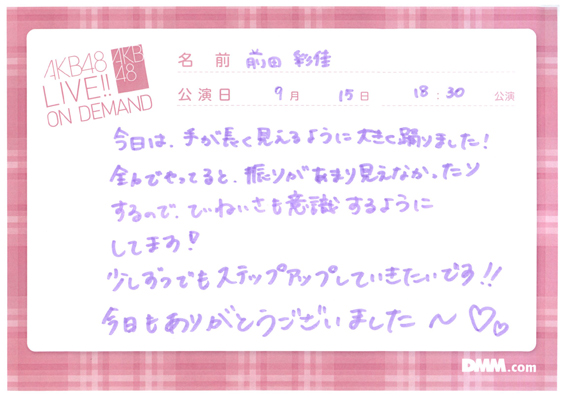 AKB48
LIVE!!
ON DEMAND
AKB
48
名 前 前田 彩佳
公演日 9月 15日 18:30 公演
今日は、手が長く見えるように大きく踊りました!
全力でやってると、振りがあまり見えなかったり
するので、ていねいさも意識するように
してます!
少しずつでもステップアップしていきたいです!!
今日もありがとうございました〜♡♡
DMM.com